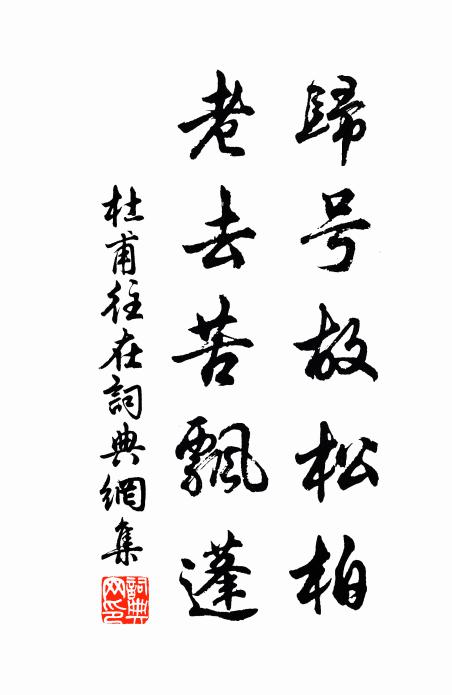 歸号故松柏
老去苦飄蓬
杜甫往在詞典網集
詞典網印